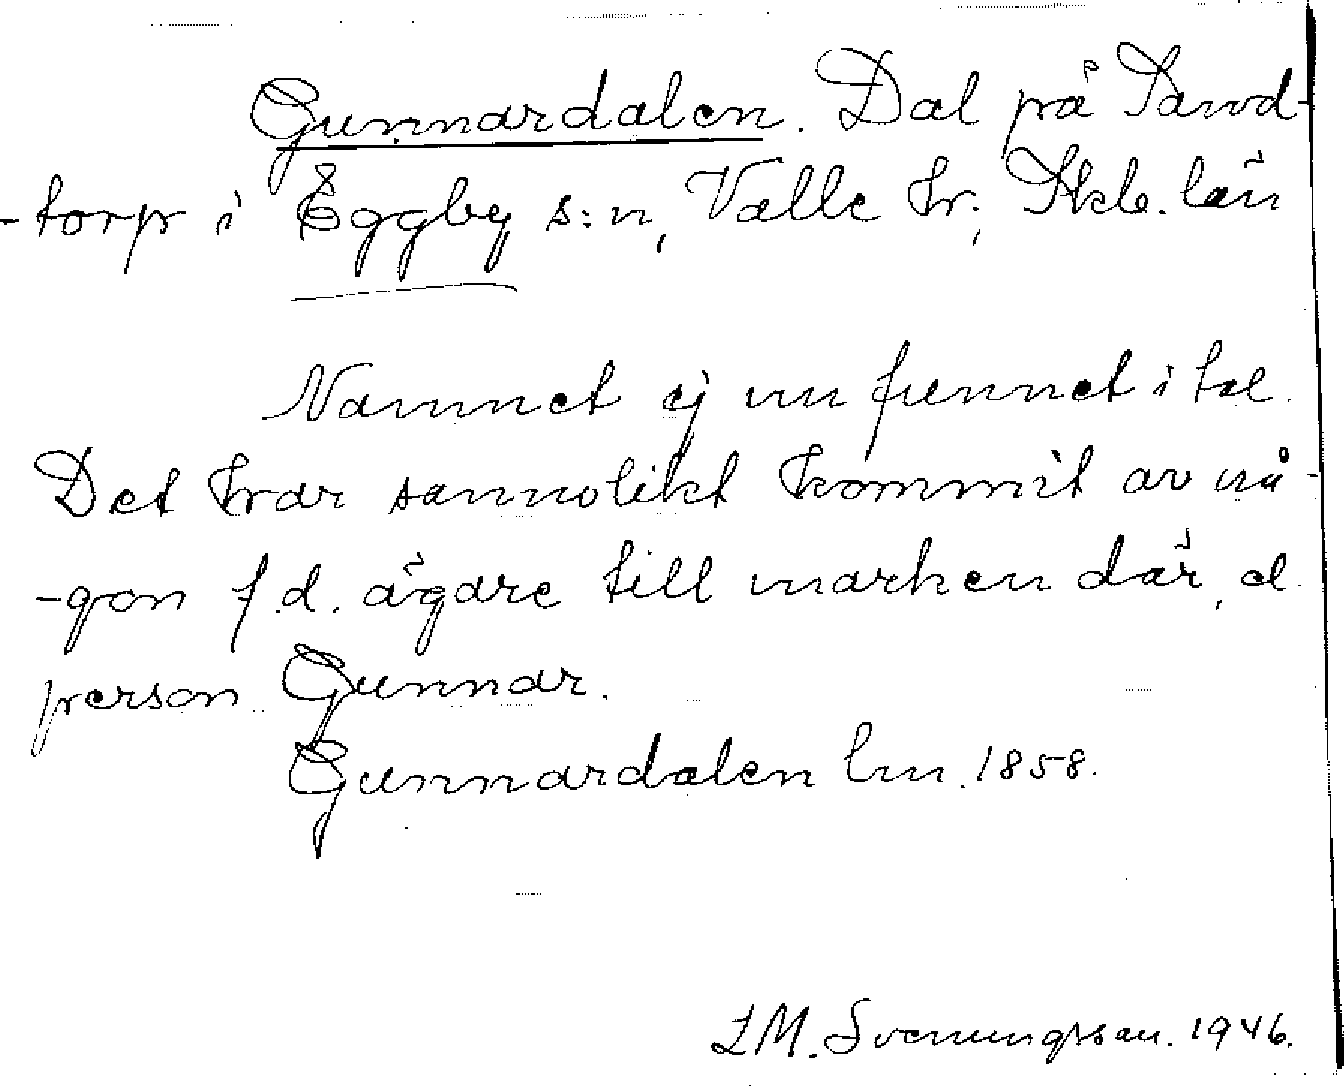 Gunnardalen. Dal på Sand-
-torp i Eggby s:n, Valle hr; Skb. län
Namnet ej nu funnet i tal.
Det har sannolikt kommit av nå-
-gon f.d. ägare till marken där, el.
person Gunnar.
Gunnardalen lm. 1858.
L.M. Svenungsson. 1946.